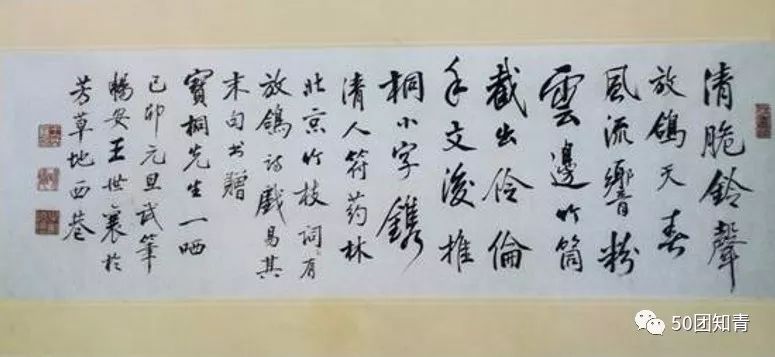 清脆鈴聲
放鴿天春
風流響粉
雲邊竹筒
截出伶倫
手文後推
桐小字鐫
清人符葯林
北京竹枝詞有
放鴿詩戲易其
末句書贈
寶桐先生一哂
己卯元旦試筆
暢安王世襄於
芳草地西巷
50团知青